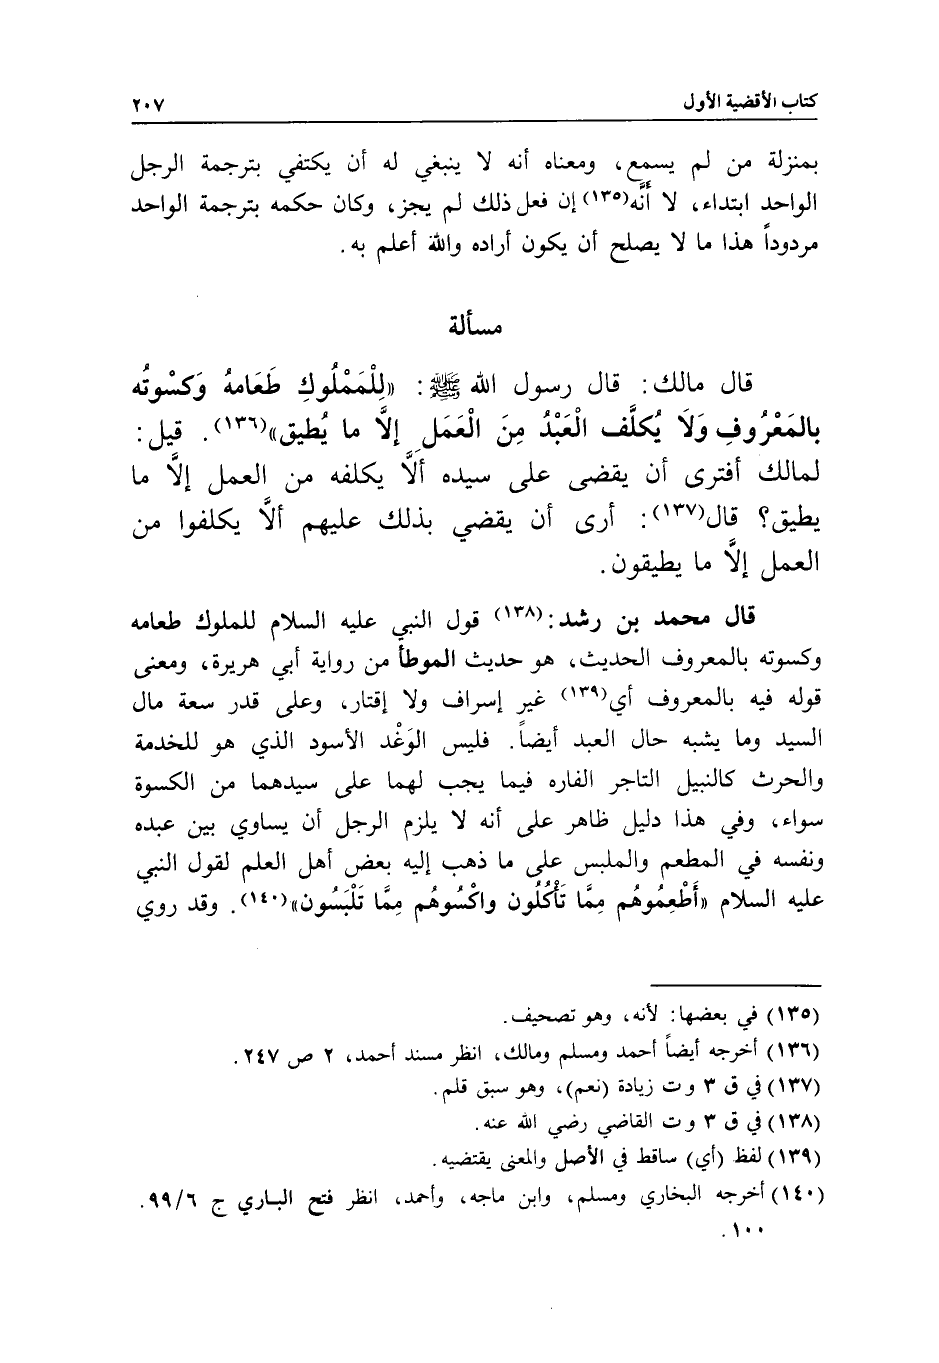 كتاب الأقضية الأول ٢٠٧
بمنزلة من لم يسمع، ومعناه أنه لا ينبغي له أن يكتفي بترجمة الرجل
الواحد ابتداء، لا أَنَّه(١٣٥) إن فعل ذلك لم يجز، وكان حكمه بترجمة الواحد
مردوداً هذا ما لا يصلح أن يكون أراده والله أعلم به.
مسألة
قال مالك: قال رسول الله ﷺ: «لِلْمَمْلُوكِ طَعَامهُ وَكسْوتُه
بالمَعْرُوفِ وَلَا يُكلَّف الْعَبْدُ مِنَ الْعَمَلِ إلَّا ما يُطيق»(١٣٦). قيل:
لمالك أفترى أن يقضى على سيده ألَّا يكلفه من العمل إلَّا ما
يطيق؟ قال(١٣٧): أرى أن يقضي بذلك عليهم ألَّا يكلفوا من
العمل إلَّا ما يطيقون.
قال محمد بن رشد:(١٣٨) قول النبي عليه السلام للملوك طعامه
وكسوته بالمعروف الحديث، هو حديث الموطأ من رواية أبي هريرة، ومعنى
قوله فيه بالمعروف أي(١٣٩) غير إسراف ولا إقتار، وعلى قدر سعة مال
السيد وما يشبه حال العبد أيضاً. فليس الوَغْد الأسود الذي هو للخدمة
والحرث كالنبيل التاجر الفاره فيما يجب لهما على سيدهما من الكسوة
سواء، وفي هذا دليل ظاهر على أنه لا يلزم الرجل أن يساوي بين عبده
ونفسه في المطعم والملبس على ما ذهب إليه بعض أهل العلم لقول النبي
عليه السلام «أَطْعِمُوهُم مِمَّا تَأْكُلُون واكْسُوهُم مِمَّا تَلْبَسُون»(١٤٠). وقد روي
(١٣٥) في بعضها: لأنه، وهو تصحيف.
(١٣٦) أخرجه أيضاً أحمد ومسلم ومالك، انظر مسند أحمد، ٢ ص ٢٤٧.
(١٣٧) في ق ٣ و ت زيادة (نعم)، وهو سبق قلم.
(١٣٨) في ق ٣ و ت القاضي رضي الله عنه.
(١٣٩) لفظ (أي) ساقط في الأصل والمعنى يقتضيه.
(١٤٠) أخرجه البخاري ومسلم، وابن ماجه، وأحمد، انظر فتح الباري ج ٩٩/٦.
١٠٠.